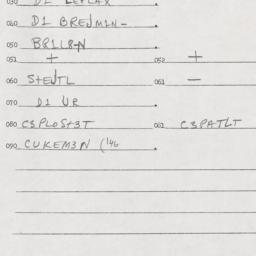 030 D1 LEPLAX
040 D1 BREJM1N-
050 B&1L8-N
051 + 052 +
060 S+EJTL 061 –
070 D1 UR
080 C3PLOS+3T 081 C3PATLT
090 CUKEM3N ('46